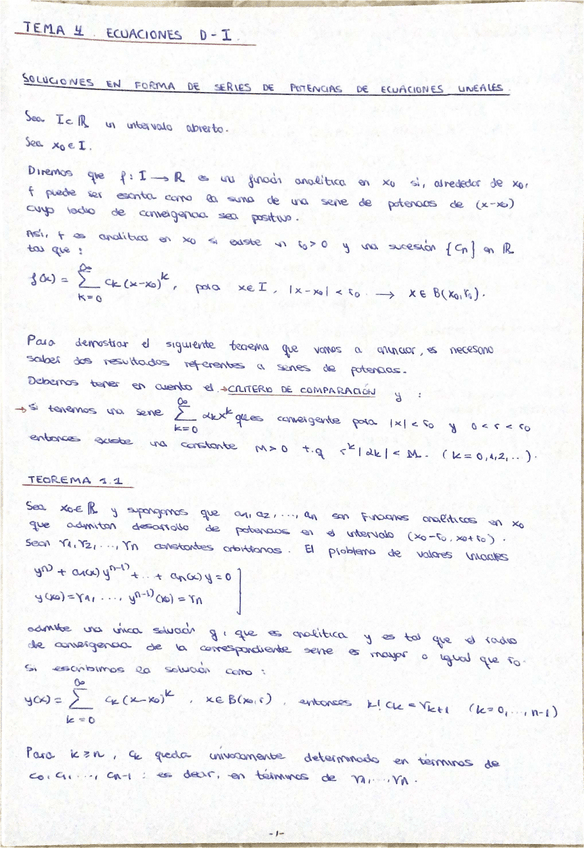 TEMA 4. ECUACIONES D-I.
SOLUCIONES EN FORMA DE SERIES DE POTENCIAS DE ECUACIONES LINEALES.
Sea I ⊂ ℝ un intervalo abierto.
Sea x₀ ∈ I.
Diremos que f: I → ℝ es una función analítica en x₀ si, alrededor de x₀,
f puede ser escrita como la suma de una serie de potencias de (x-x₀)
cuyo radio de convergencia sea positivo.
Así, f es analítica en x₀ si existe un r₀>0 y una sucesión {Cn} en ℝ
tal que:
f(x) = ∑_{k=0}^{∞} Ck(x-x₀)^k, para x∈I, |x-x₀| < r₀. → x ∈ B(x₀,r₀).
Para demostrar el siguiente teorema que vamos a enunciar, es necesario
saber dos resultados referentes a series de potencias.
Debemos tener en cuenta el → CRITERIO DE COMPARACIÓN y:
→ si tenemos una serie ∑_{k=0}^{∞} αk x^k que es convergente para |x| < r₀ y 0 < r < r₀
entonces existe una constante M>0 t.q r^k |αk| < M. (k=0,1,2,..).
TEOREMA 1.1
Sea x₀∈ℝ y supongamos que a₁, a₂, ..., an son funciones analíticas en x₀
que admiten desarrollo de potencias en el intervalo (x₀-r₀, x₀+r₀).
Sean γ₁, γ₂, ..., γn constantes arbitrarias. El problema de valores iniciales
y^{n)} + a₁(x) y^{n-1)} + .. + an(x) y = 0
y(x₀) = γ₁, ..., y^{n-1)}(x₀) = γn
admite una única solución y, que es analítica y es tal que el radio
de convergencia de la correspondiente serie es mayor o igual que r₀.
Si escribimos la solución como:
y(x) = ∑_{k=0}^{∞} Ck(x-x₀)^k, x∈B(x₀,r), entonces k! Ck = γk+1 (k=0,..,n-1)
Para k≥n, Ck queda unívocamente determinado en términos de
C₀, C₁, ..., Cn-1: es decir, en términos de γ₁,..,γn.
-1-